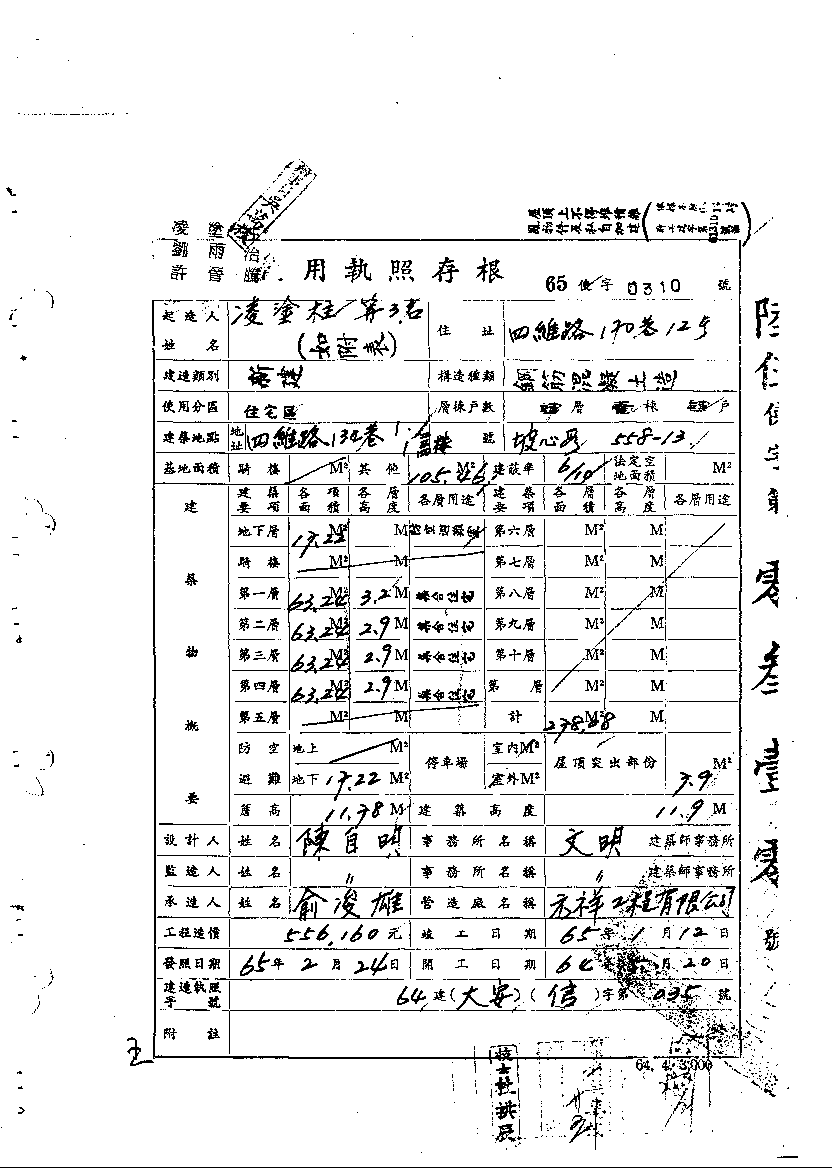 屋頂上不得堆積雜
凌塗
劉雨治
許晉騰
用執照存根
65 使字 0310 號
起造人姓名 凌塗柱 等3名 (如附表) 住址 四維路170巷12号
建造類別 新建 構造種類 鋼筋混凝土造
使用分區 住宅區 層棟戶數 層 棟 戶
建築地點 地址 四維路134巷 號 坡心段 558-13
基地面積 騎樓 M² 其他 105.46 M² 建蔽率 6/10 法定空地面積 M²
建築物概要 建築要項 各項面積 各層高度 各層用途 建築要項 各層面積 各層高度 各層用途
地下層 17.22 M² M 第六層 M² M
騎樓 M² M 第七層 M² M
第一層 63.24 M² 3.2 M 集合住宅 第八層 M² M
第二層 63.24 M² 2.9 M 集合住宅 第九層 M² M
第三層 63.24 M² 2.9 M 集合住宅 第十層 M² M
第四層 63.24 M² 2.9 M 集合住宅 第 層 M² M
第五層 M² M 計 M²
防空避難 地上 M² 停車場 室內M² 屋頂突出部份 M²
地下 17.22 M² 室外M² 7.9
簷高 11.78 M 建築高度 11.9 M
設計人 姓名 陳自明 事務所名稱 文明 建築師事務所
監造人 姓名 〃 事務所名稱 〃 建築師事務所
承造人 姓名 俞俊雄 營造廠名稱 禾祥工程有限公司
工程造價 556,160 元 竣工日期 65年1月12日
發照日期 65年2月24日 開工日期 64年 月20日
建造執照字號 64建(大安)(信)字第 035 號
附註
64. 4. 3,000
技士杜拱辰
陸伍使字第零叁壹零號